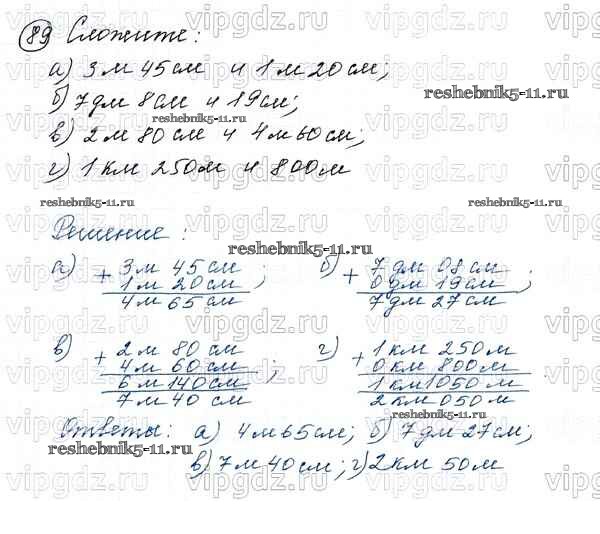 89 Сложите:
а) 3 м 45 см и 1 м 20 см;
б) 7 дм 8 см и 19 см;
в) 2 м 80 см и 4 м 60 см;
г) 1 км 250 м и 800 м
Решение:
а) + 3 м 45 см
1 м 20 см ;
4 м 65 см
б) + 7 дм 08 см
0 дм 19 см ;
7 дм 27 см
в) + 2 м 80 см
4 м 60 см
6 м 140 см ;
7 м 40 см
г) + 1 км 250 м
0 км 800 м
1 км 1050 м
2 км 050 м
Ответы: а) 4 м 65 см; б) 7 дм 27 см;
в) 7 м 40 см; г) 2 км 50 м
vipgdz.ru
reshebnik5-11.ru